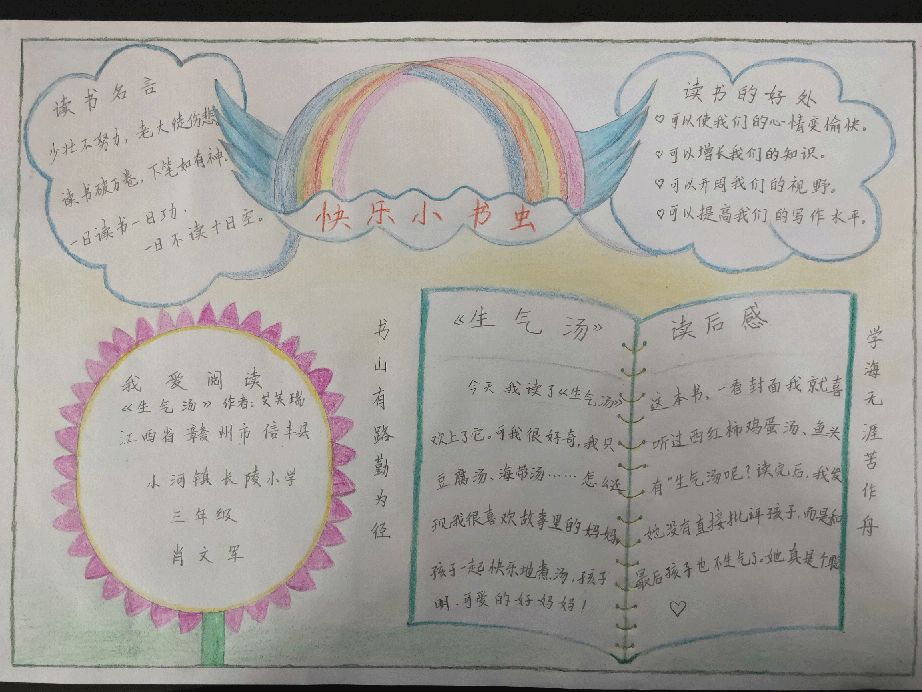 快乐小书虫
读书名言
少壮不努力,老大徒伤悲
读书破万卷,下笔如有神.
一日读书一日功,
一日不读十日空。
读书的好处
♡可以使我们的心情变愉快。
♡可以增长我们的知识。
♡可以开阔我们的视野。
♡可以提高我们的写作水平。
我爱阅读
《生气汤》作者:艾芙瑞
江西省赣州市信丰县
小河镇长陵小学
三年级
肖文军
书山有路勤为径
《生气汤》 读后感
今天我读了《生气汤》这本书,一看封面我就喜
欢上了它。可我很好奇,我只听过西红柿鸡蛋汤、鱼头
豆腐汤、海带汤……怎么还有“生气汤呢?读完后,我发
现我很喜欢故事里的妈妈,她没有直接批评孩子,而是和
孩子一起快乐地煮汤,孩子最后孩子也不生气了。她真是个聪
明、可爱的好妈妈!
♡
学海无涯苦作舟